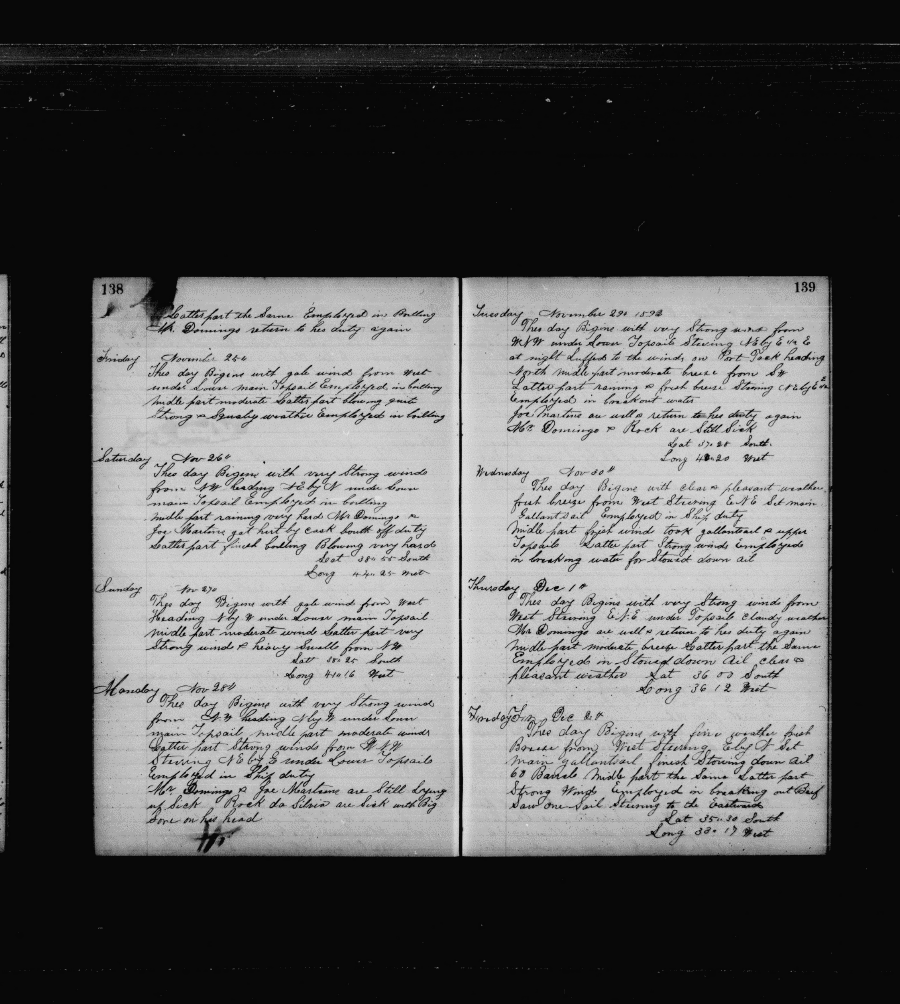 138
Latter part the Same Employed in Boiling
Mr. Domingo return to his duty again
Friday November 25th
This day Bigins with gale wind from West
under Lower main Topsail Employed in boiling
midle part moderate Latter part blowing quit
Strong & Squaly weather Employed in boiling
Saturday Nov 26th
This day Begins with very Strong winds
from NW heading NE by N under Lower
main Topsail Employed in boiling
midle part raining very hard Mr Domingo &
Joe Martins got hurt by cask bouth off duty
Latter part finish boiling Blowing very hard
Lat 38.. 55 South
Long 44.. 25 West
Sunday Nov 27th
This day Bigins with gale wind from West
Heading N by W under Lower main Topsail
midle part moderate winds Latter part very
Strong winds & heavy Swells from NW
Latt 38.. 25 South
Long 41.. 16 West
Monday Nov 28th
This day Bigins with very Strong winds
from NW heading N by W under Lower
main Topsail midle part moderate winds
Latter part Strong winds from WNW
Steering NE by E under Lower Topsails
Employed in Ship duty
Mr. Domingo & Joe Martins are Still Laying
up Sick Rock da Silvia are Sick with Big
Sore on his head
139
Tuesday November 29th 1892
This day Bigins with very Strong winds from
WNW under Lower Topsails Steering NE by E
at night Luffed to the winds on Port Tack heading
North midle part moderate breeze from SW
Latter part raining & fresh breeze Steering NE by E
Employed in breakout water
Joe Martins are well & return to his duty again
Mr. Domingo & Rock are Still Sick
Lat 37.. 28 South
Long 40.. 20 West
Wednesday Nov 30th
This day Bigins with clear & pleasant weather
fresh breeze from West Steering ENE Set main
Gallantsail Employed in Ship duty
Midle part fresh winds took gallantsail & upper
Topsails Latter part Strong winds Employed
in breaking water for Stowed down oil
Thursday Dec 1st
This day Bigins with very Strong winds from
West Steering ENE under Topsails cloudy weather
Mr Domingo are well & return to his duty again
Midle part moderate breeze Latter part the Same
Employed in Stowed down oil clear &
pleasant weather Lat 36 00 South
Long 36 12 West
Dec 2th
This day Bigins with fine weather fresh
Breeze from West Steering E by N Set
main gallantsail finish Stowing down oil
60 Barrels Midle part the Same Latter part
Strong Winds Employed in breaking out Beef
Saw one Sail Steering to the Eastward
Lat 35.. 30 South
Long 33.. 17 West